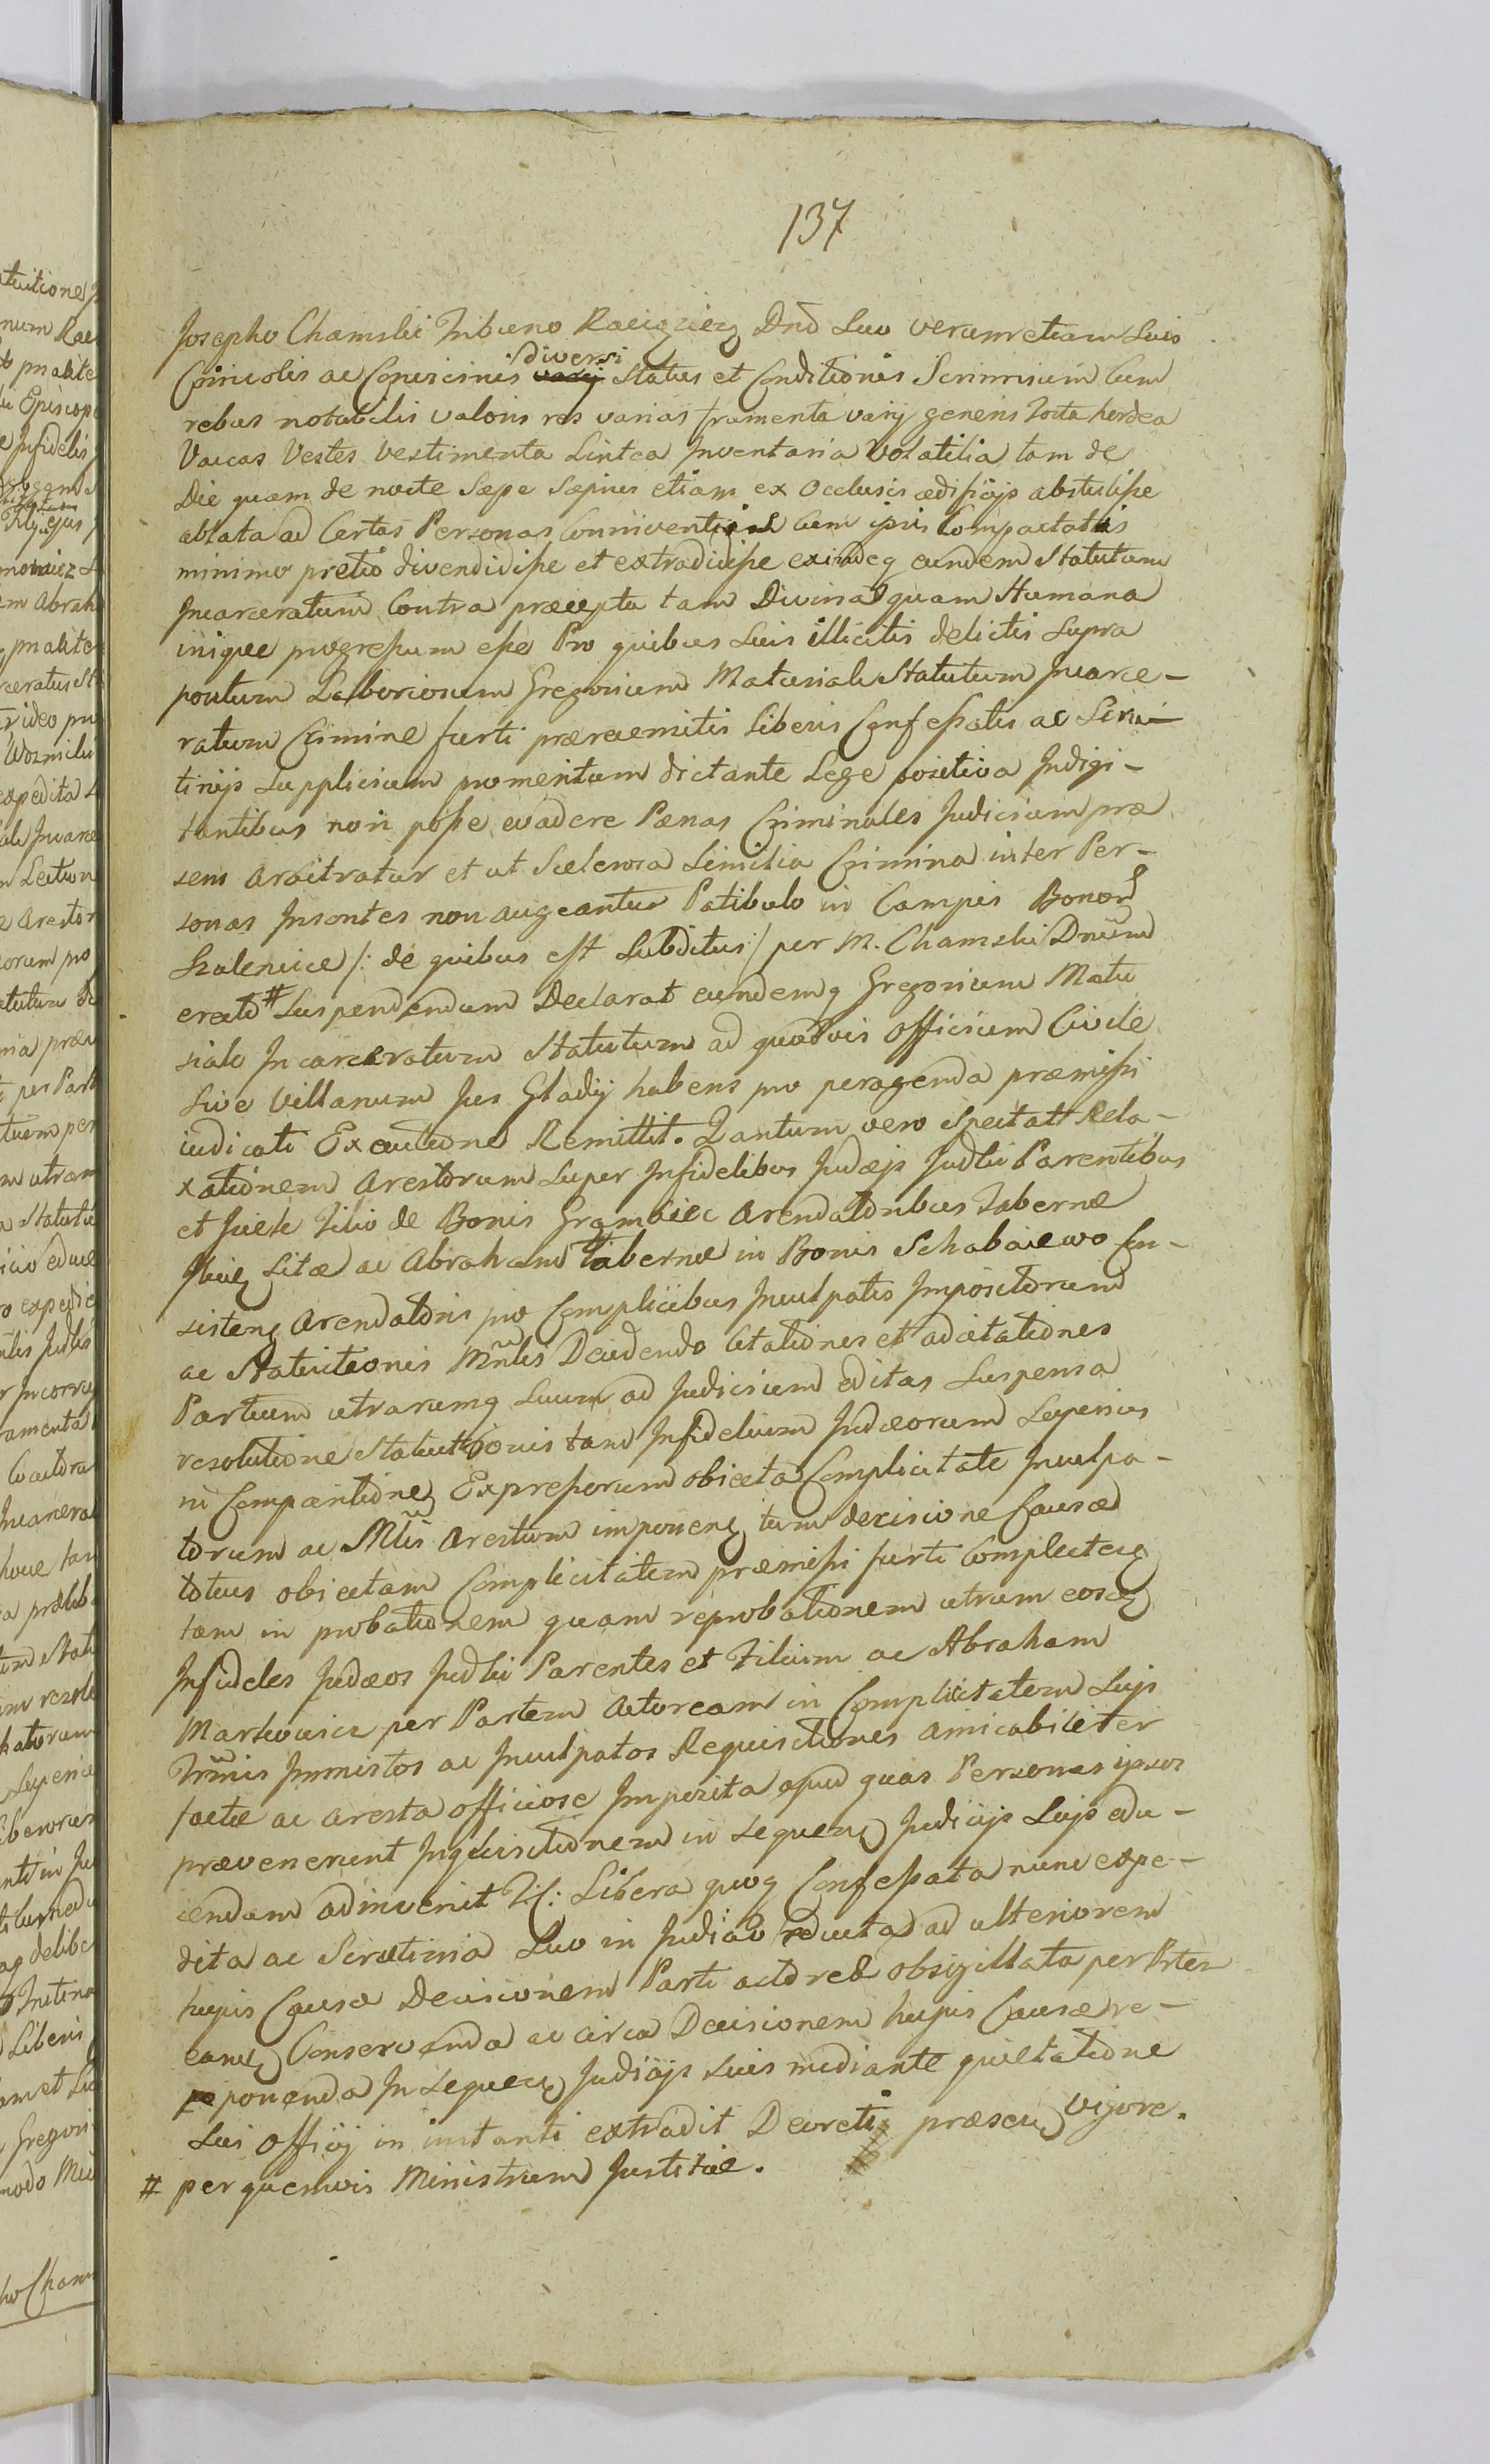 137
Josepho Chamski Tribuno Raciązien Dnô Suo verumetiam Suis
Coincolis ac Convicinis diversi Status et Conditionis Scrinium Cum
rebus notabilis valoris res varias frumenta varij generis hordea
Vaccas Vestes Vestimenta Lintea Inventaria Volatilia tam de
Die quam de nocte Sæpe Sæpius etiam ex Occlusis ædificijs abstulisse
ablata ad Certas Personas Conniventi Cum ipsis Compactatis
minimo pretio divendidisse et extradidisse exindeq eundem Statutum
Incarceratum Contra præcepta tam Divina quam Humana
inique progressum esse Pro quibus Suis illicitis delictis Supra
positum Laboriosum Gregorium Matusiak Statutum Incarce-
ratum Crimine furti præventum ... Liberis Confessatis ac Scru-
tinijs Supplicium promeritum dictante Lege positiva Indigi-
tantibus non posse evadere Pænas Criminales Judicium præ
sens arbitratur et ut Scelerosa Similia Crimina inter Per-
sonas Insontes non augeantur Patibulo in Campis Bonor
/: de quibus est Subditus :/ per M. Chamski Dnum
erecto # Suspendendum Declarat eundemq Gregorium Matu
siak Incarceratum Statutum ad quodvis officium Civile
Sive Villanum Jus Gladij habens pro peragenda præmissi
iudicati Executione Remittit. Quantum vero Spectat Rela-
xationem Arestorum Super Infidelibus Judæis Judki Parentibus
et Filio de Bonis Arendatoribus Tabernæ
Sitæ ac Abraham Tabernæ in Bonis Schabaiewo Con-
sisten Arendatoris pro Complicibus Inculpatis Impositorum
ac Statuitionis Decidendo Citationes et adcitationes
Partium utrarumq Suum ad Judicium editas Suspensa
resolutione Statuitionis tam Infidelium Judæorum Superius
in Comparitione Expressorum obiecta Complicitate Inculpa-
torum ac arestum imponen tum decisione Causæ
totius obiectam Complicitatem præmissi furti Complecten
tam in probationem quam reprobationem utrum eosd
Infideles Judæos Judki Parentes et Filium ac Abraham
Markowicz per Partem Actoream in Complicitatem
Immistos ac Inculpatos Requisitiones amicabiliter
factæ ac aresta officiose Imposita apud quas Personas ipsos
prævenerunt Inquisitionem in sequen Judicijs Suis edu-
cendam adinvenit Libera quoq Confessata nunc expe-
dita ac Scrutinia Suo in Judicio educta ad ulteriorem
hujus Causæ Decisionem Parti actoreæ obsigillata per
eand Conservanda ac circa Decisionem hujus Causæ re-
ponenda In sequen Judicijs Suis mediante quietatione
Sui officij in instanti extradit Decreti præsen vigore.
# per quemvis Ministrum Justitiæ.